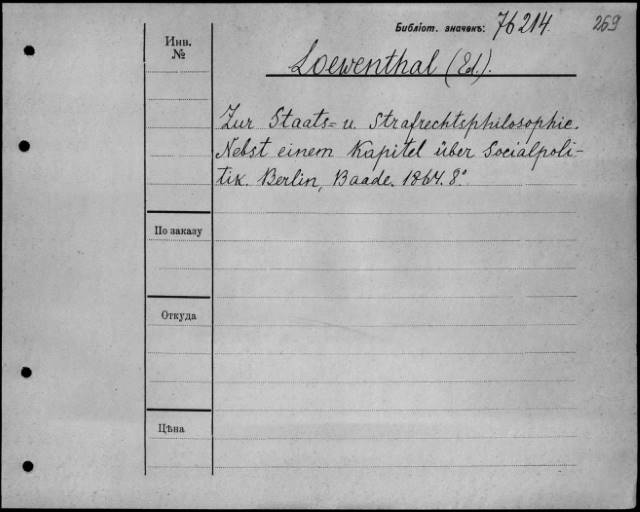 Библіот. значекъ: 76214. 269
Инв.
№
Loewenthal (Ed.).
Zur Staats= u. Strafrechtsphilosophie.
Nebst einem Kapitel über Socialpoli-
tik. Berlin, Baade. 1864. 8°
По заказу
Откуда
Цѣна